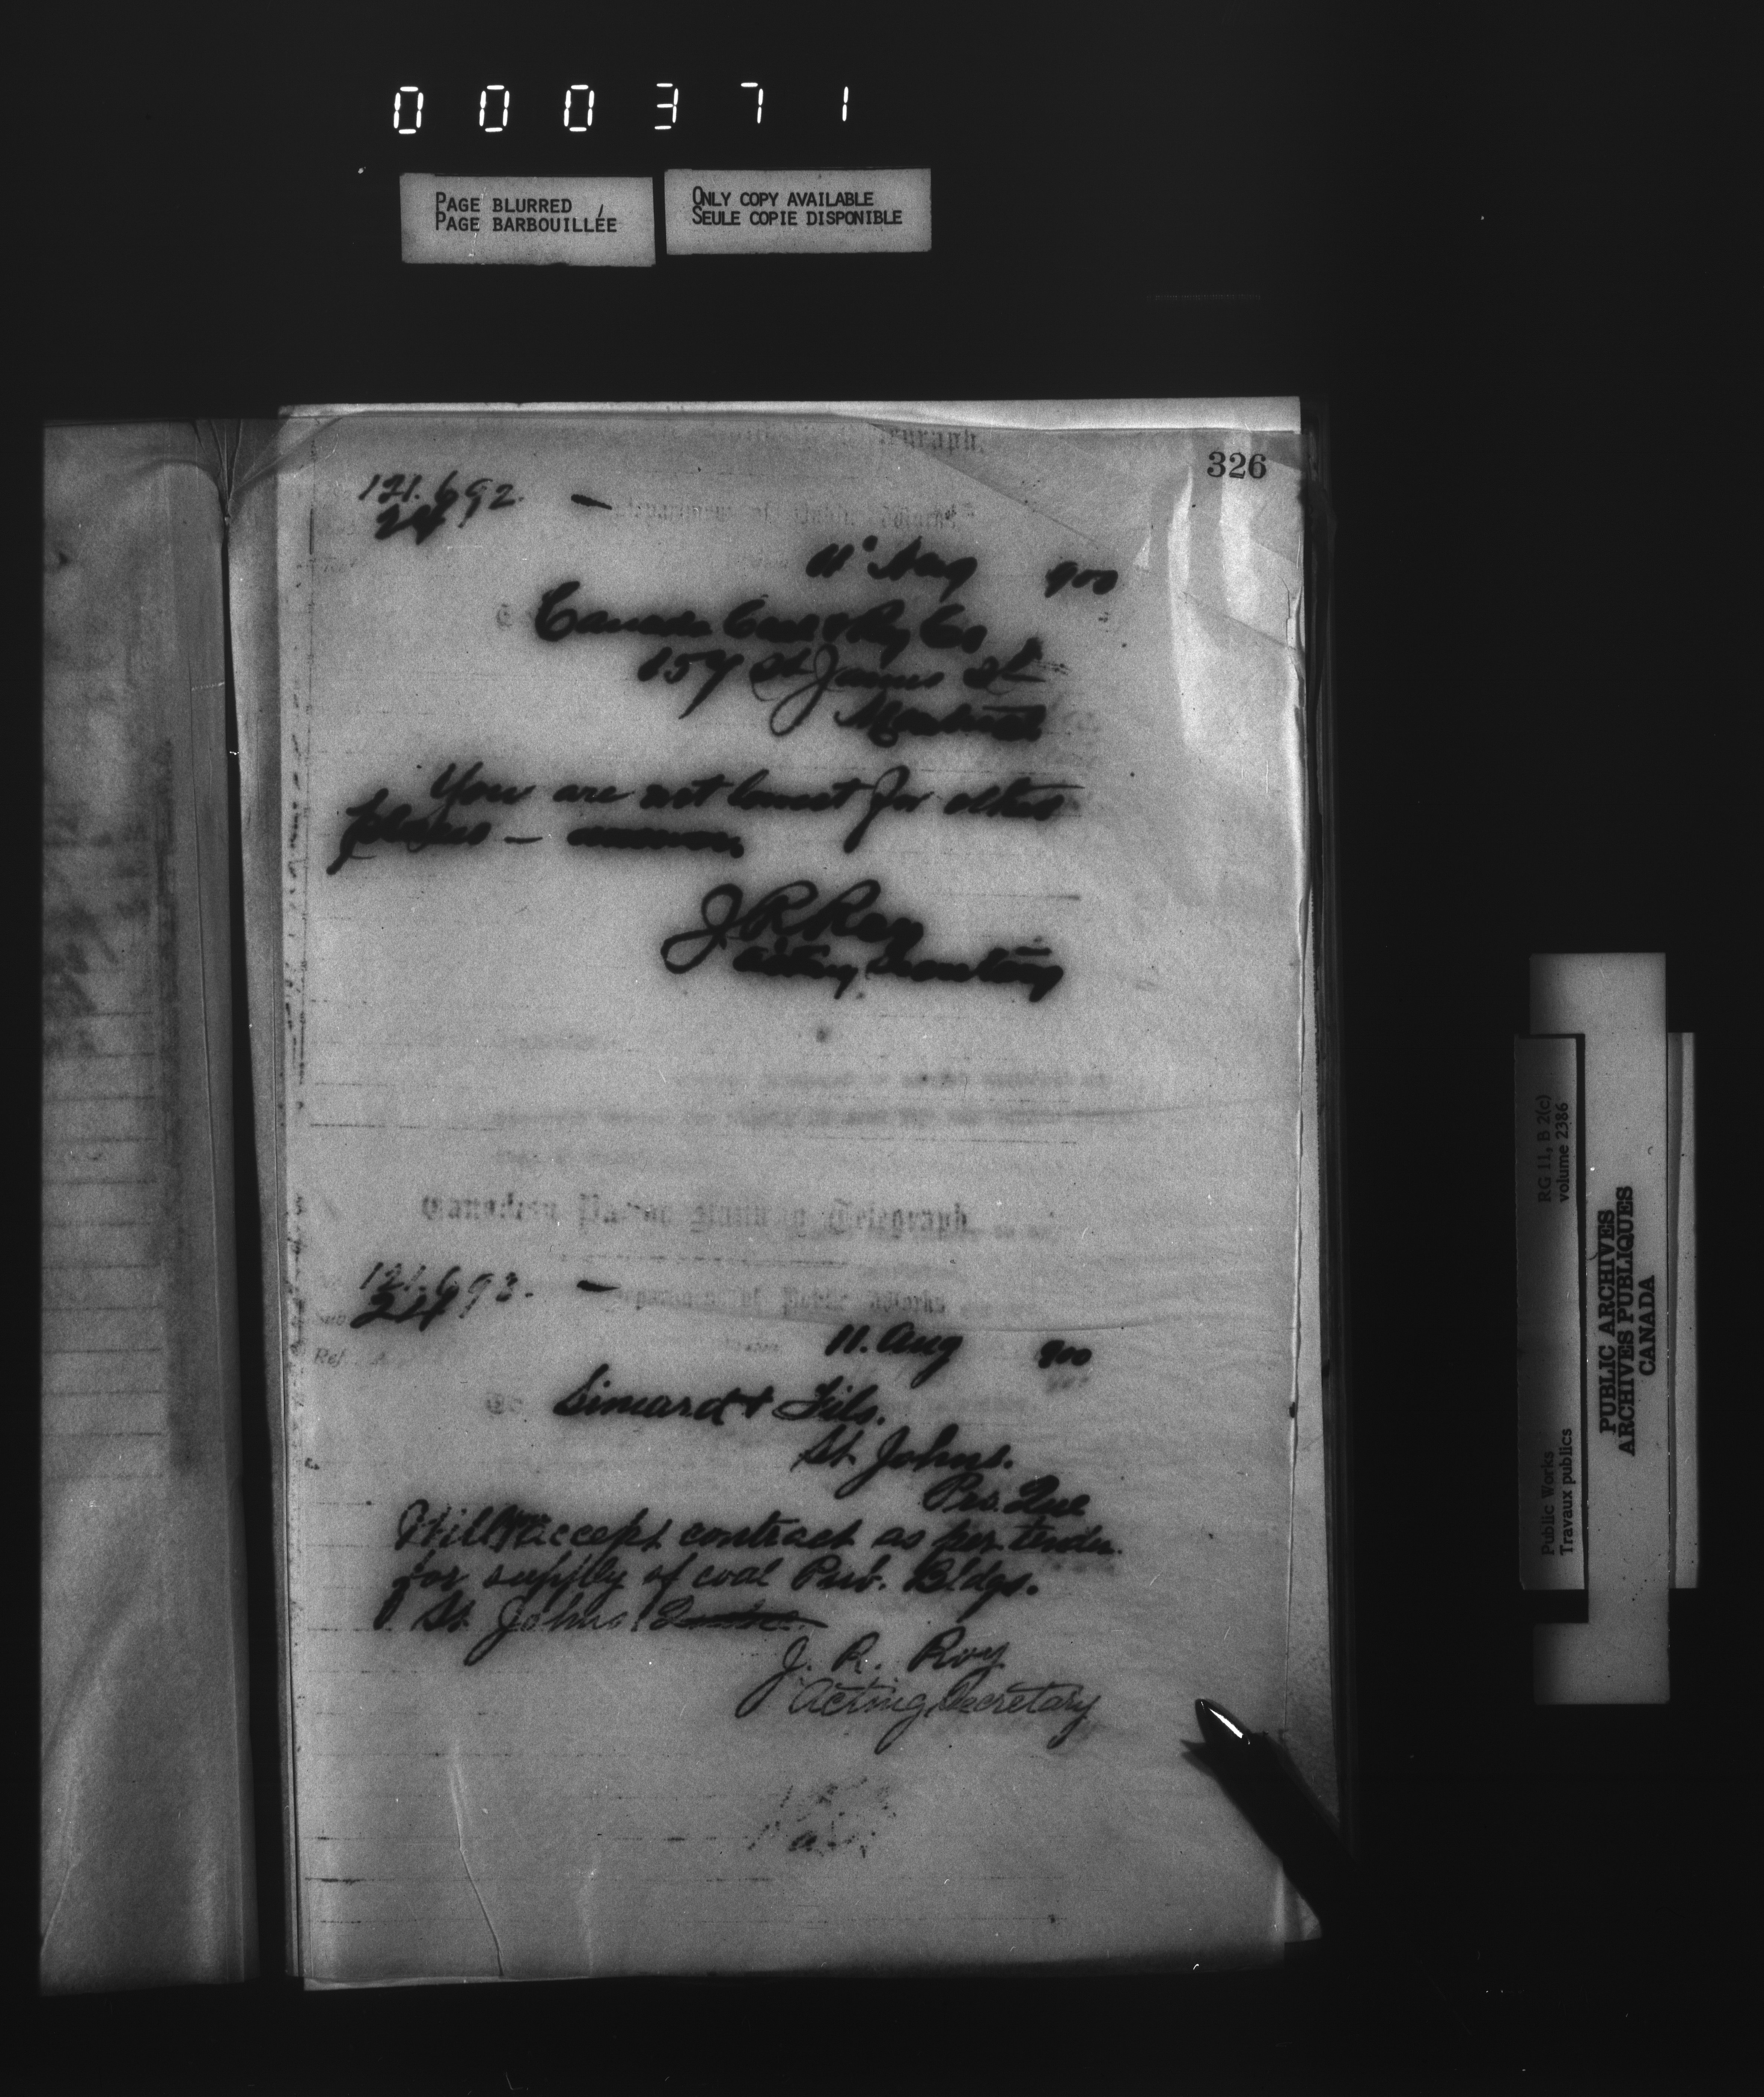 000371
PAGE BLURRED
PAGE BARBOUILLÉE
ONLY COPY AVAILABLE
SEULE COPIE DISPONIBLE
326
121.692. —
24
11 Aug 900
Canada Coal & Ry Co
157 St James St
Montreal
You are not lowest for other
places —
J R Roy
Acting Secretary
Canadian Telegraph
121.693. —
24
Department of Public Works
11. Aug 900
Simard & Fils.
St. Johns.
Pro. Que
Will accept contract as per tender
for supply of coal Pub. Bldgs.
St. Johns
J. R. Roy
Acting Secretary
RG 11, B 2(c)
volume 2386
Public Works
Travaux publics
PUBLIC ARCHIVES
ARCHIVES PUBLIQUES
CANADA